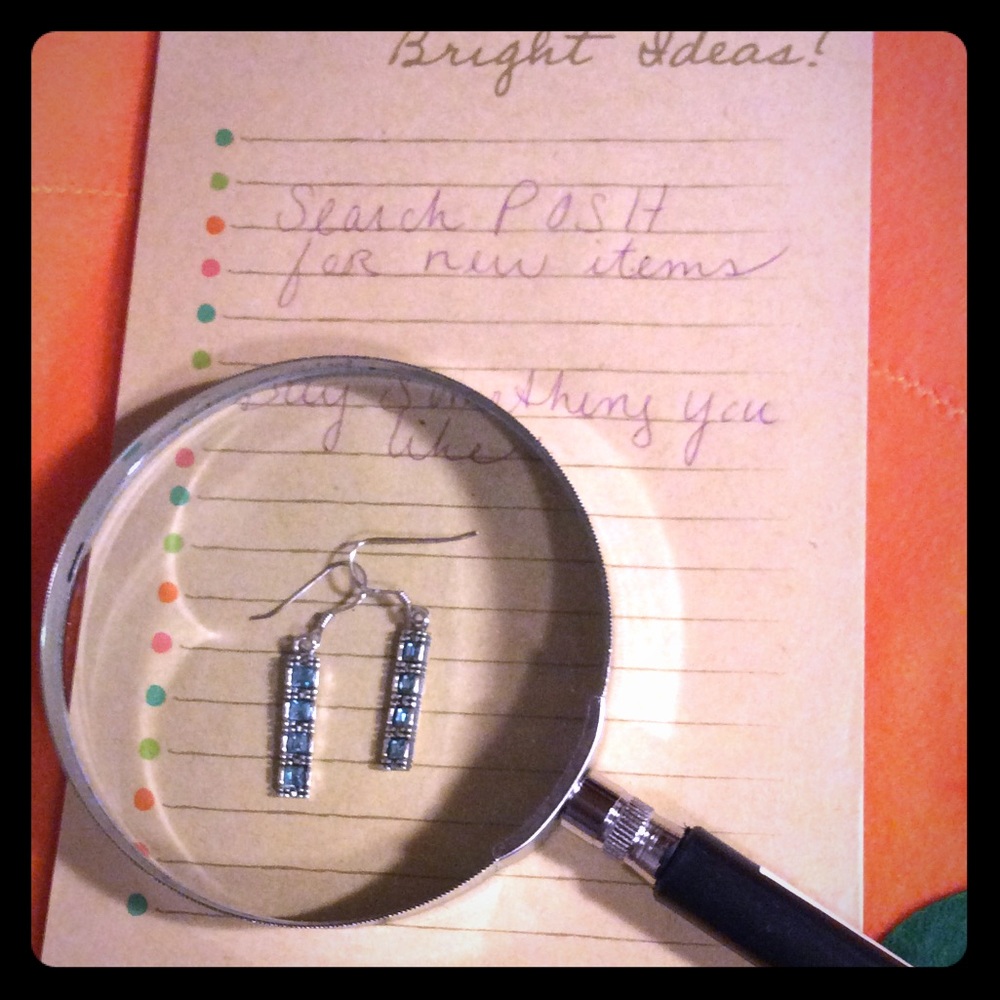 Bright Ideas!
Search POSH
for new items
Buy Something you
like